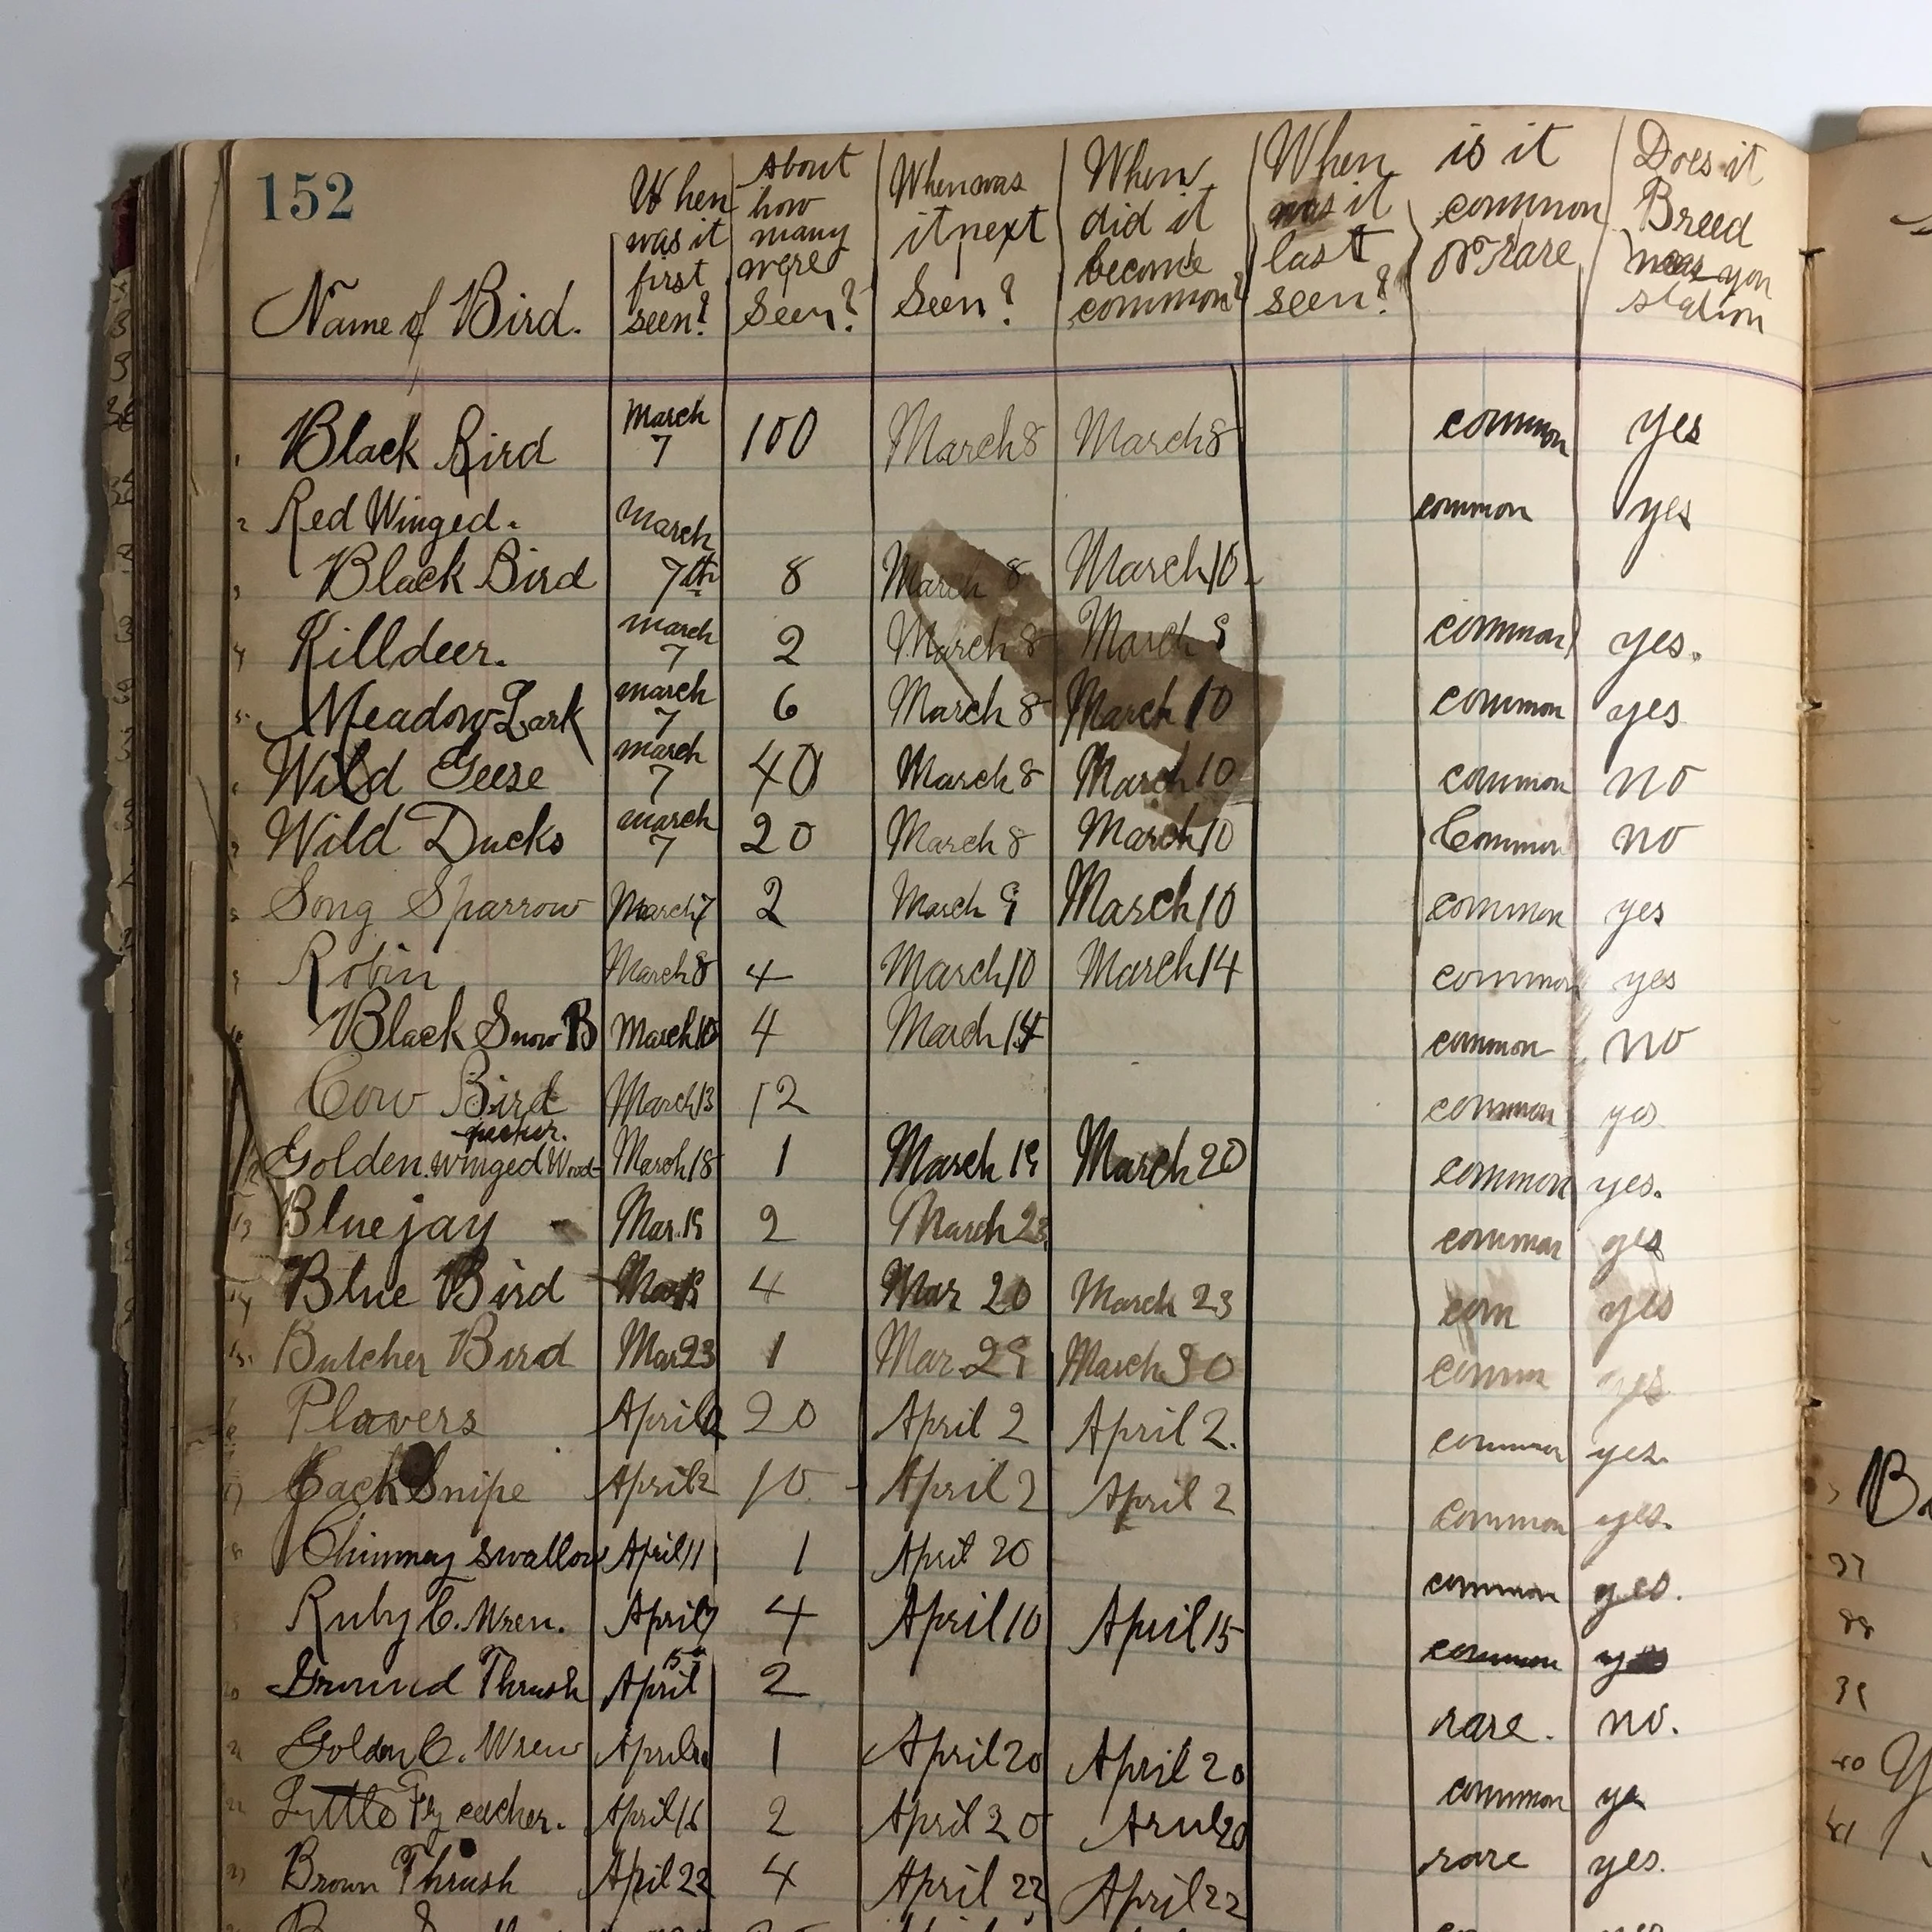 152
Name of Bird. When was it first seen? About how many were Seen? When was it next Seen? When did it become common? When was it last seen? is it common or rare Does it Breed near you station
1 Black Bird March 7 100 March 8 March 8 common yes
2 Red Winged. March common yes
3 Black Bird 7th 8 March 8 March 10
4 Killdeer. march 7 2 March 8 March common yes.
5 Meadow Lark march 7 6 March 8 March 10 common yes
6 Wild Geese march 7 40 March 8 March 10 common no
7 Wild Ducks march 7 20 March 8 March 10 Common no
8 Song Sparrow March 7 2 March 9 March 10 common yes
9 Robin March 8 4 March 10 March 14 common yes
10 Black Snow B March 10 4 March 14 common no
Cow Bird March 13 12 common yes
12 Golden winged Wood-pecker. March 18 1 March 19 March 20 common yes.
13 Blue jay Mar. 19 2 March 23 common yes
14 Blue Bird 4 Mar 20 March 23 com yes
15. Butcher Bird Mar 23 1 Mar 29 March 30 common yes
16 Plovers April 20 April 2 April 2. common yes.
17 Jack Snipe April 2 10 April 2 April 2 common yes.
18 Chimney swallow April 11 1 April 20 common yes.
Ruby C. Wren. April 7 4 April 10 April 15 common yes
20 Ground Thrush April 15 2 rare. no.
21 Golden C. Wren April 1 April 20 April 20 common ye
22 Little Fly catcher. April 16 2 April 20 20 rare yes.
23 Brown Thrush April 22 4 April 22 April 22
37
38
39
40
41